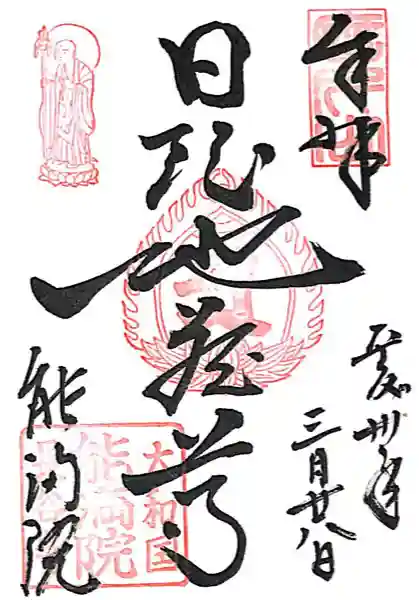 奉拝
平成卅年
三月廿八日
日限地蔵尊
能満院
大和国
能満院